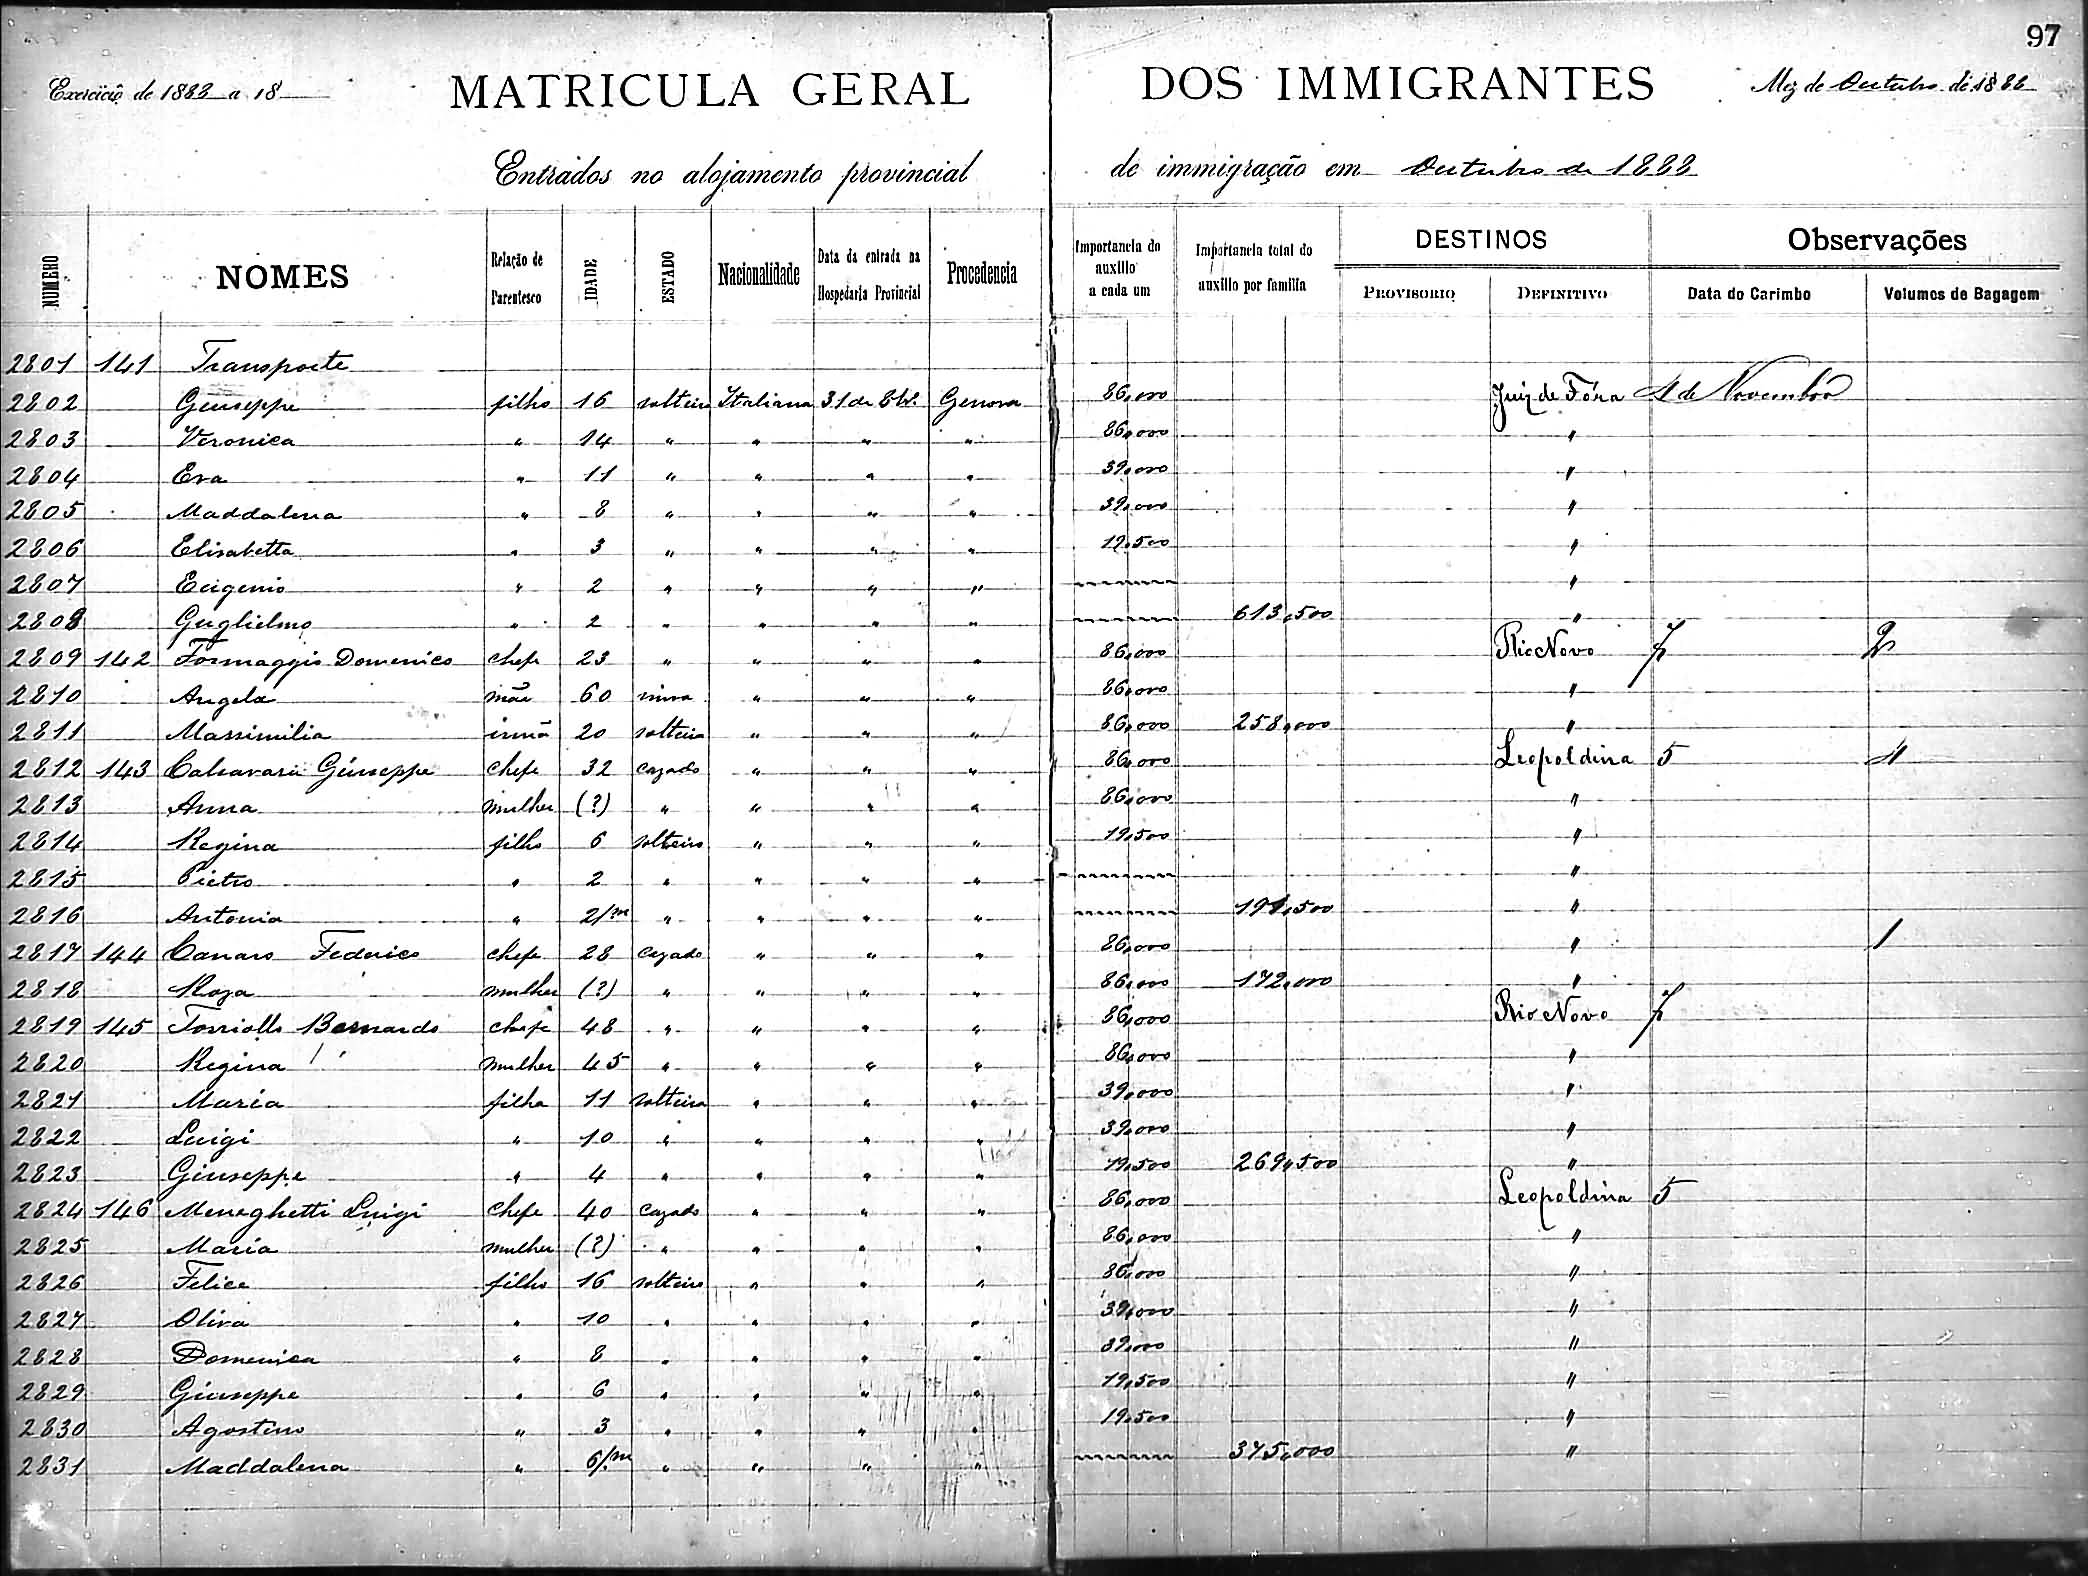 97
Exercicio de 1888 a 18 MATRICULA GERAL DOS IMMIGRANTES Mez de Outubro de 1888
Entrados no alojamento provincial de immigração em Outubro de 1888
NUMERO NOMES Relação de Parentesco IDADE ESTADO Nacionalidade Data da entrada na Hospedaria Provincial Procedencia Importancia do auxilio a cada um Importancia total do auxilio por familia DESTINOS PROVISORIO DEFINITIVO Observações Data do Carimbo Volumes de Bagagem
2801 141 Transporte
2802 Giuseppe filho 16 solteiro Italiana 31 de 8bro. Genova 86,000 Juiz de Fóra 4 de Novembro
2803 Veronica " 14 " " " " 86,000 "
2804 Eva " 11 " " " " 39,000 "
2805 Maddalena " 8 " " " " 39,000 "
2806 Elisabetta " 3 " " " " 19,500 "
2807 Eugenio " 2 " " " " "
2808 Guglielmo " 2 " " " " 613,500 "
2809 142 Formaggio Domenico chefe 23 " " " " 86,000 Rio Novo 7 2
2810 Angela mãe 60 viuva " " " 86,000 "
2811 Massimilia irmã 20 solteira " " " 86,000 258,000 "
2812 143 Calzavara Giuseppe chefe 32 cazado " " " 86,000 Leopoldina 5 4
2813 Anna mulher (?) " " " " 86,000 "
2814 Regina filho 6 solteiro " " " 19,500 "
2815 Pietro " 2 " " " " "
2816 Antonia " 2/m " " " " 191,500 "
2817 144 Canaro Federico chefe 28 cazado " " " 86,000 " 1
2818 Roza mulher (?) " " " " 86,000 172,000 "
2819 145 Torriollo Bernardo chefe 48 " " " " 86,000 Rio Novo 7
2820 Regina mulher 45 " " " " 86,000 "
2821 Maria filha 11 solteira " " " 39,000 "
2822 Luigi " 10 " " " " 39,000 "
2823 Giuseppe " 4 " " " " 19,500 269,500 "
2824 146 Meneghetti Luigi chefe 40 cazado " " " 86,000 Leopoldina 5
2825 Maria mulher (?) " " " " 86,000 "
2826 Felice filho 16 solteiro " " " 86,000 "
2827 Oliva " 10 " " " " 39,000 "
2828 Domenica " 8 " " " " 39,000 "
2829 Giuseppe " 6 " " " " 19,500 "
2830 Agostino " 3 " " " " 19,500 "
2831 Maddalena " 6/m " " " " 375,000 "